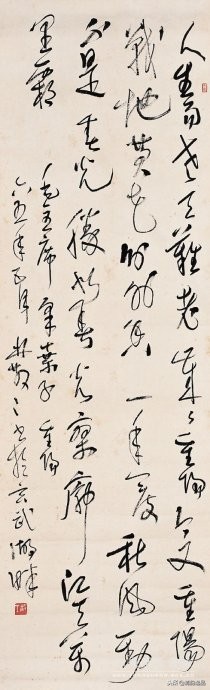 人生易老天難老歲々重陽今又重陽
戰地黄花分外香一年一度秋風勁
不是春光勝似春光寥廓江天萬
里霜
毛主席采桑子重陽
六五年 月林散之書於玄武湖畔